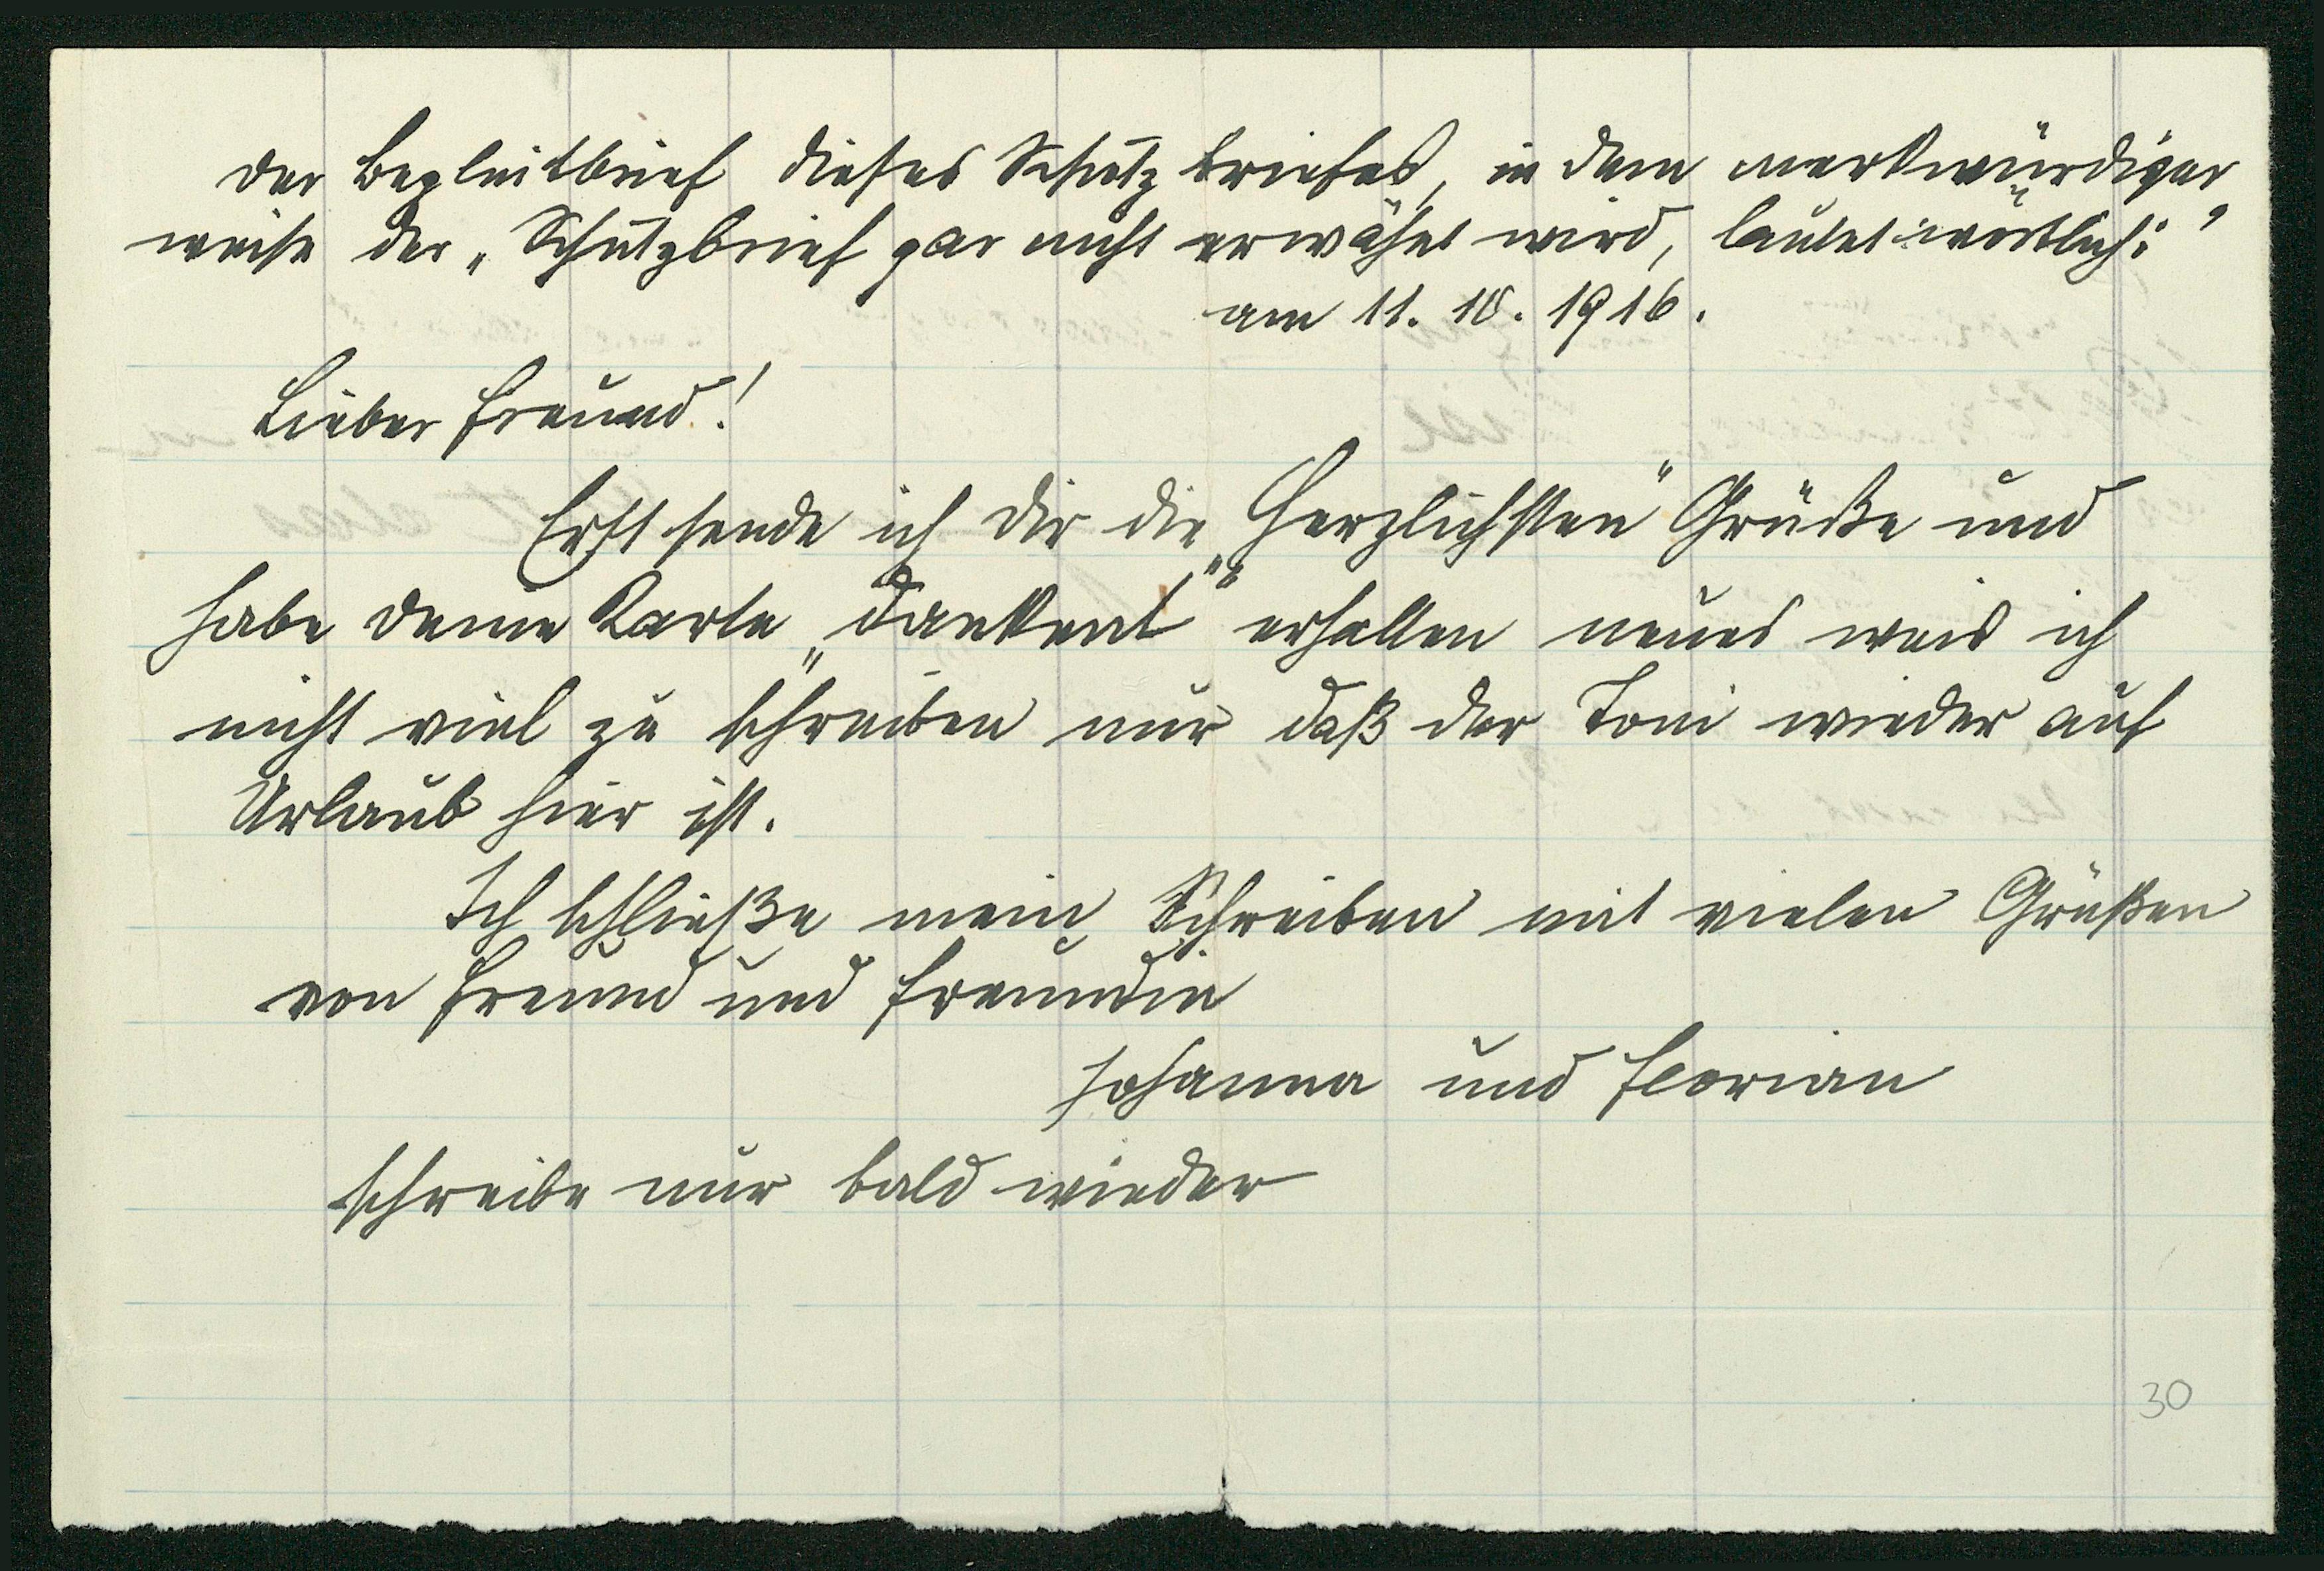 Der Begleitbrief dieses Schutzbriefes, in dem merkwürdiger
weise der „Schutzbrief gar nicht erwähnt wird, lautet wörtlich: "
am 11. 10. 1916.
Lieber Freund!
Erst sende ich dir die „Herzlichsten" Grüße und
habe deine Karte „dankent" erhalten neues weis ich
nicht viel zu schreiben nur daß der Toni wieder auf
Urlaub hier ist.
Ich schließe mein Schreiben mit vielen Grüßen
von Freund und Freundin
Johanna und Florian
schreibe nur bald wieder
30